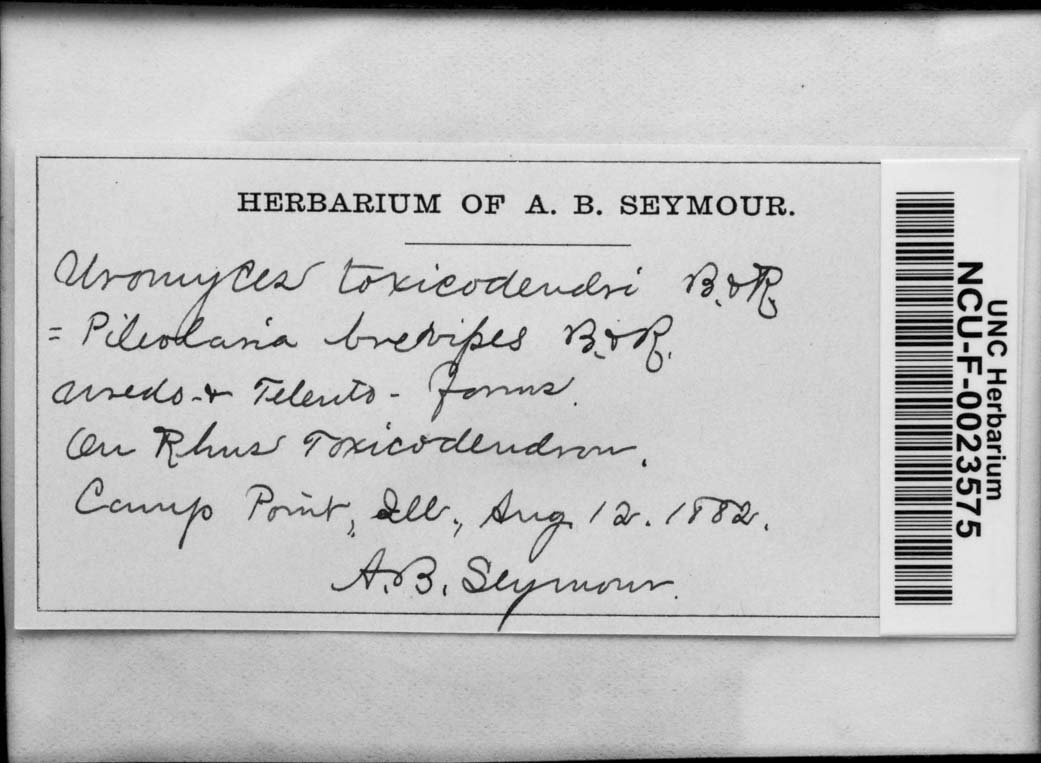 HERBARIUM OF A. B. SEYMOUR.
Uromyces toxicodendri B. & R.
= Pileolaria brevipes B. & R.
Uredo- & Teleuto- forms.
On Rhus Toxicodendron.
Camp Point, Ill., Aug. 12. 1882.
A. B. Seymour.
UNC Herbarium
NCU-F-0023575